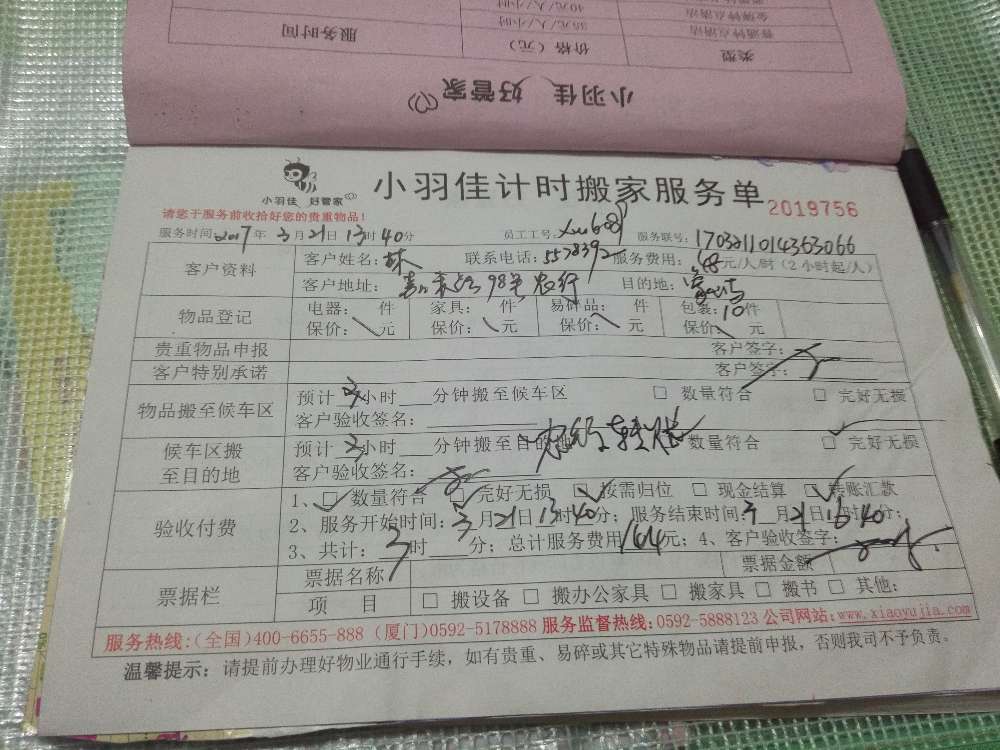 40元/人/小时
金牌钟点清洁
35元/人/小时
普通钟点清洁
服务时间
价格（元）
类型
小羽佳 好管家
小羽佳 好管家
小羽佳计时搬家服务单
2019756
请您于服务前收拾好您的贵重物品！
服务时间2017年3月21日13时40分 员工工号: 服务联号:
客户资料 客户姓名:林 联系电话:5578392 服务费用: 元/人/时（2小时起/人）
客户地址: 98号农行 目的地:
物品登记 电器: 件 家具: 件 易碎品: 件 包装:10件
保价: 元 保价: 元 保价: 元 保价: 元
贵重物品申报 客户签字:
客户特别承诺 客户签字:
物品搬至候车区 预计3小时 分钟搬至候车区 □ 数量符合 □ 完好无损
客户验收签名:
候车区搬至目的地 预计3小时 分钟搬至目的地 数量符合 □ 完好无损
客户验收签名:
验收付费 1、□ 数量符合 □ 完好无损 □ 按需归位 □ 现金结算 □ 转账汇款
2、服务开始时间:3月21日13时40分; 服务结束时间3月21日16时40分;
3、共计:3时 分; 总计服务费用164元; 4、客户验收签字:
票据栏 票据名称 票据金额
项 目 □ 搬设备 □ 搬办公家具 □ 搬家具 □ 搬书 □ 其他:
服务热线:(全国)400-6655-888 (厦门)0592-5178888 服务监督热线:0592-5888123 公司网站:www.xiaoyujia.com
温馨提示: 请提前办理好物业通行手续，如有贵重、易碎或其它特殊物品请提前申报，否则我司不予负责。